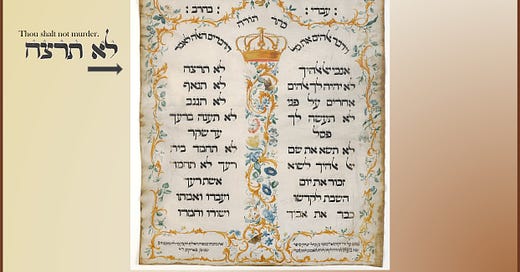 Thou shalt not murder.
לא תרצח
כתר תורה
וידבר אלהים את כל
הדברים האלה לאמר
אנכי אלהיך
לא יהיה לך אלהים
אחרים על פני
לא תעשה לך
פסל
לא תשא את שם
אלהיך לשוא
זכור את יום
השבת לקדשו
כבד את אביך
לא תרצח
לא תנאף
לא תגנב
לא תענה ברעך
עד שקר
לא תחמד בית
רעך לא תחמד
אשת רעך
ועבדו ואמתו
ושורו וחמרו